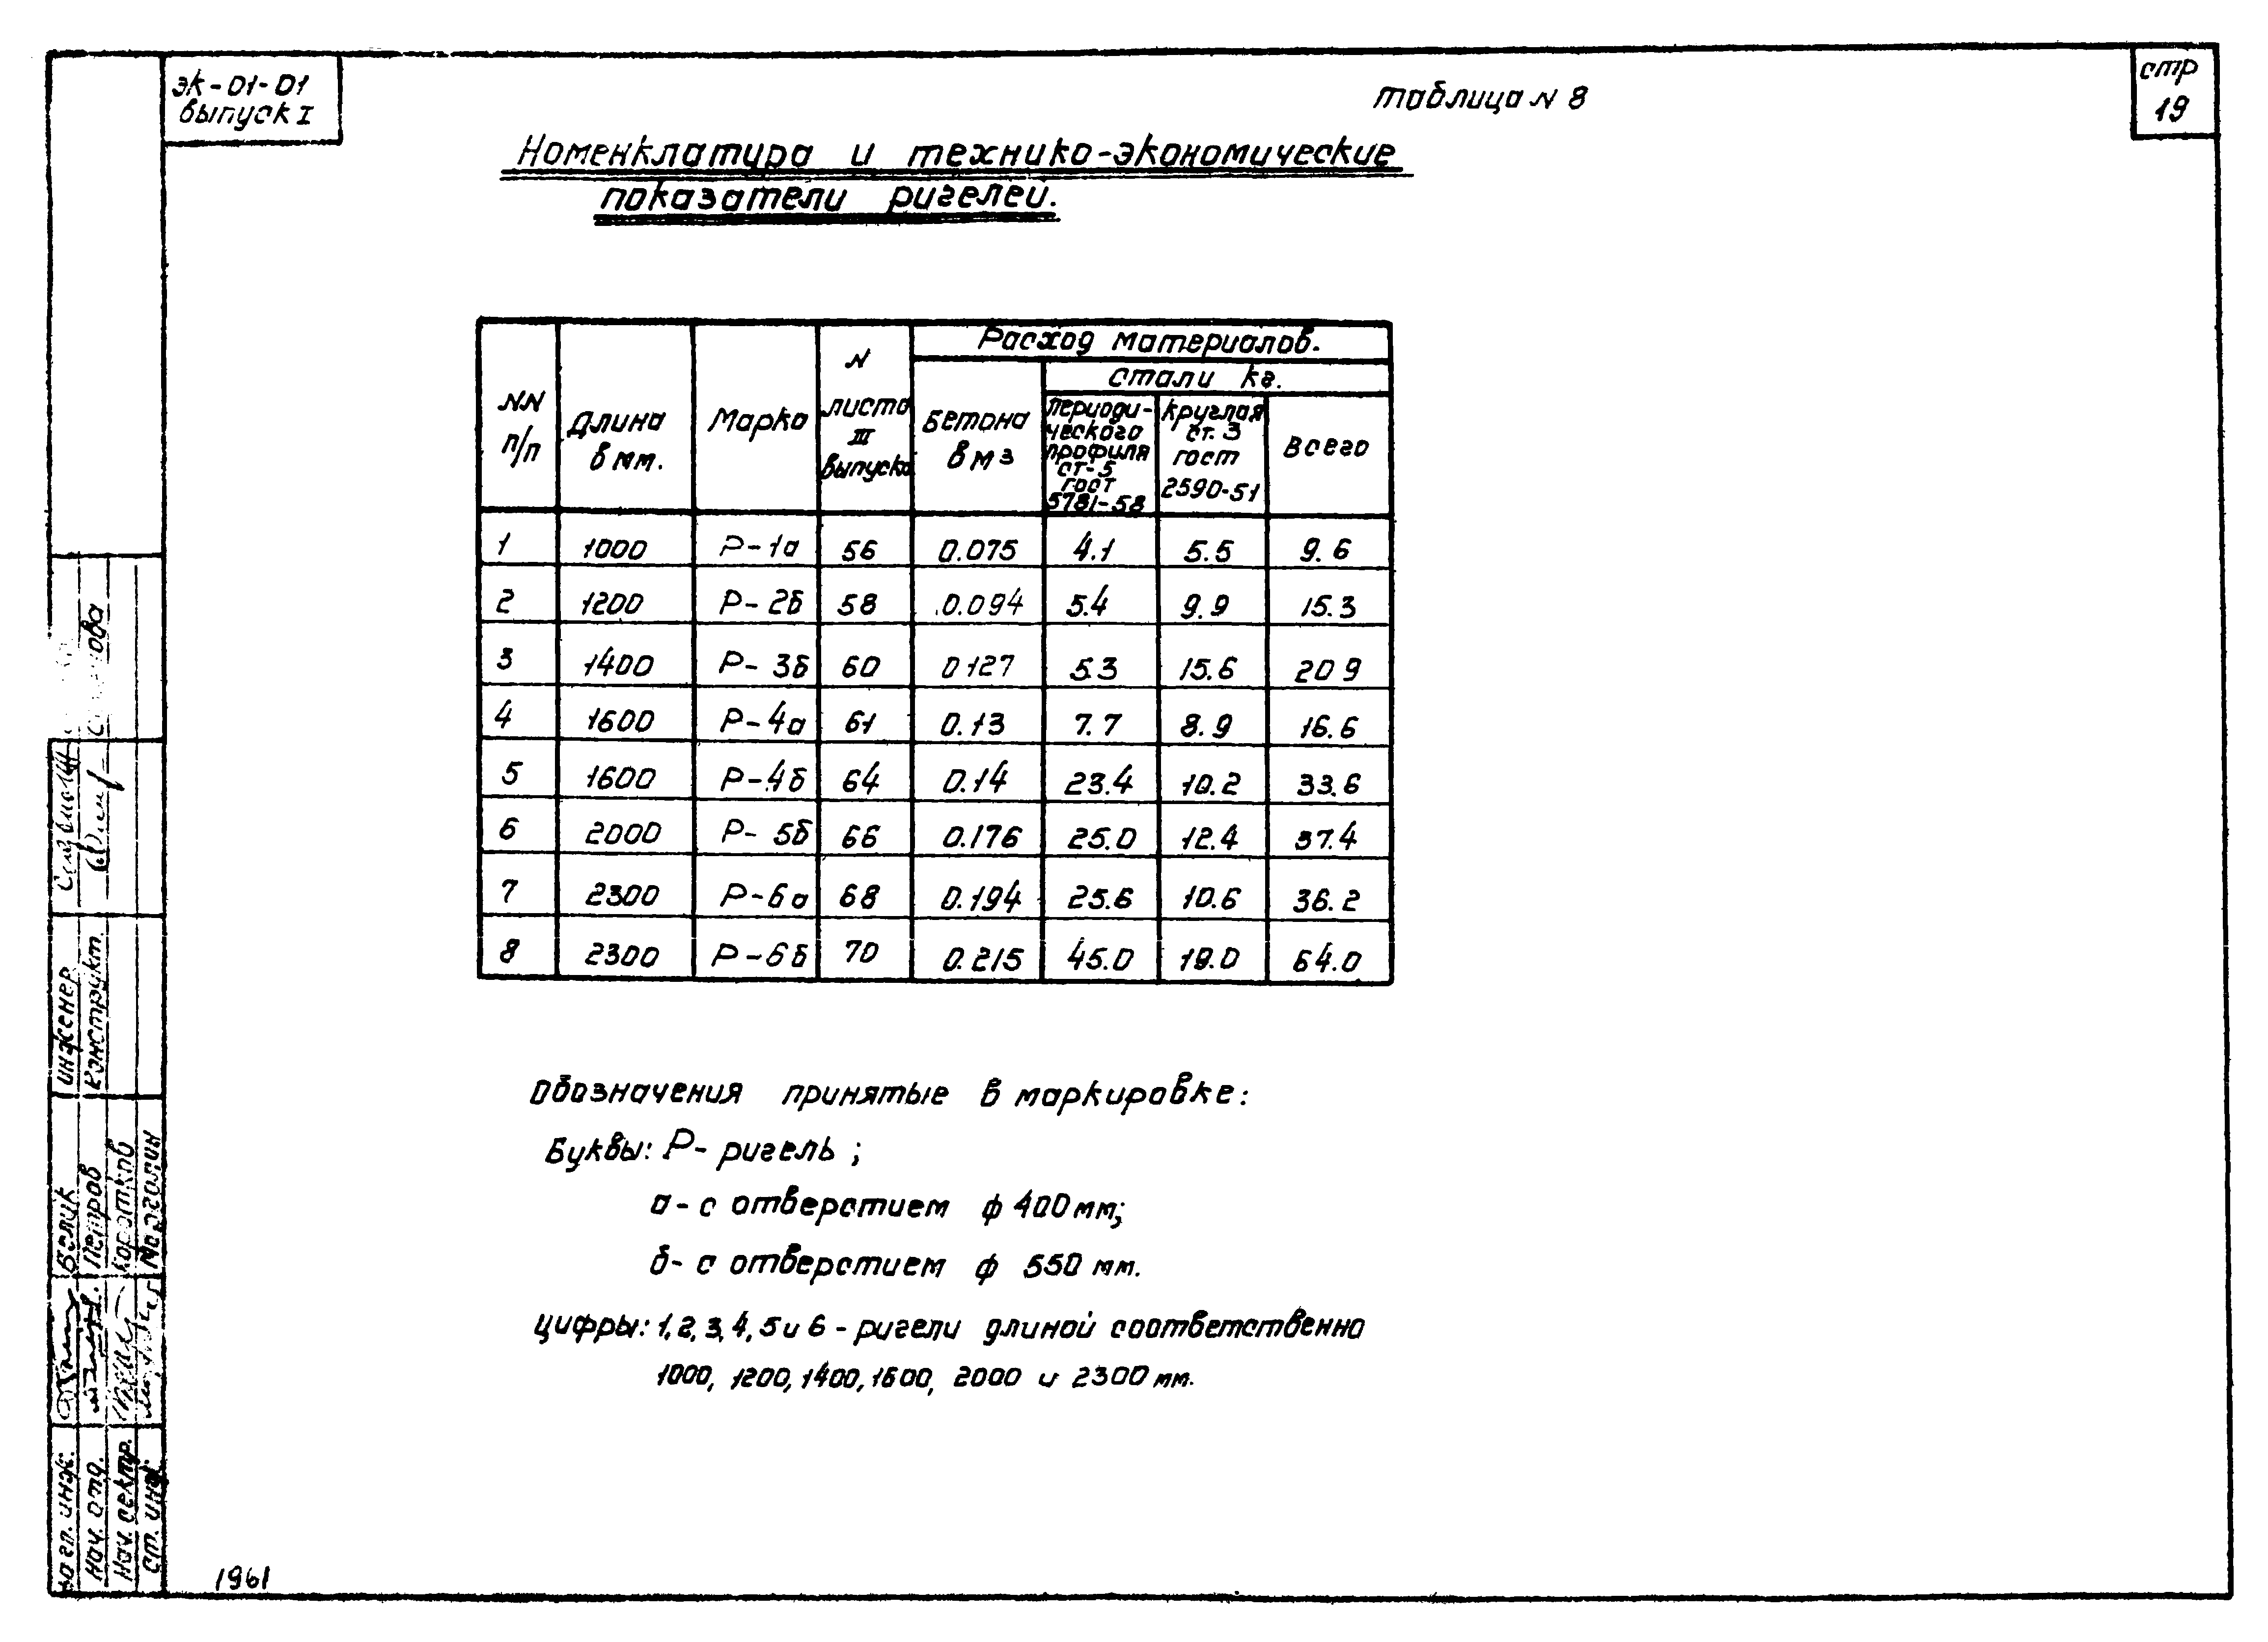 эк-01-01
выпуск I
таблица N 8
стр
19
Номенклатура и технико-экономические
показатели ригелей.
NN п/п
Длина в мм.
Марка
N листа III выпуска
Расход материалов.
Бетона в м3
стали кг.
периодического профиля ст-5 гост 5781-58
круглая ст. 3 гост 2590-51
всего
1 1000 Р-1а 56 0.075 4.1 5.5 9.6
2 1200 Р-2б 58 0.094 5.4 9.9 15.3
3 1400 Р-3б 60 0127 5.3 15.6 20 9
4 1600 Р-4а 61 0.13 7.7 8.9 16.6
5 1600 Р-4б 64 0.14 23.4 10.2 33.6
6 2000 Р-5б 66 0.176 25.0 12.4 37.4
7 2300 Р-6а 68 0.194 25.6 10.6 36.2
8 2300 Р-6б 70 0.215 45.0 19.0 64.0
Обозначения принятые в маркировке:
Буквы: Р- ригель ;
а- с отверстием ф 400 мм;
б- с отверстием ф 550 мм.
цифры: 1, 2, 3, 4, 5 и 6 - ригели длиной соответственно
1000, 1200, 1400, 1600, 2000 и 2300 мм.
инженер
конструкт.
Белик
Петров
Коротков
Марголин
гл. инж.
Нач. отд.
Нач. сектр.
ст. инж.
1961